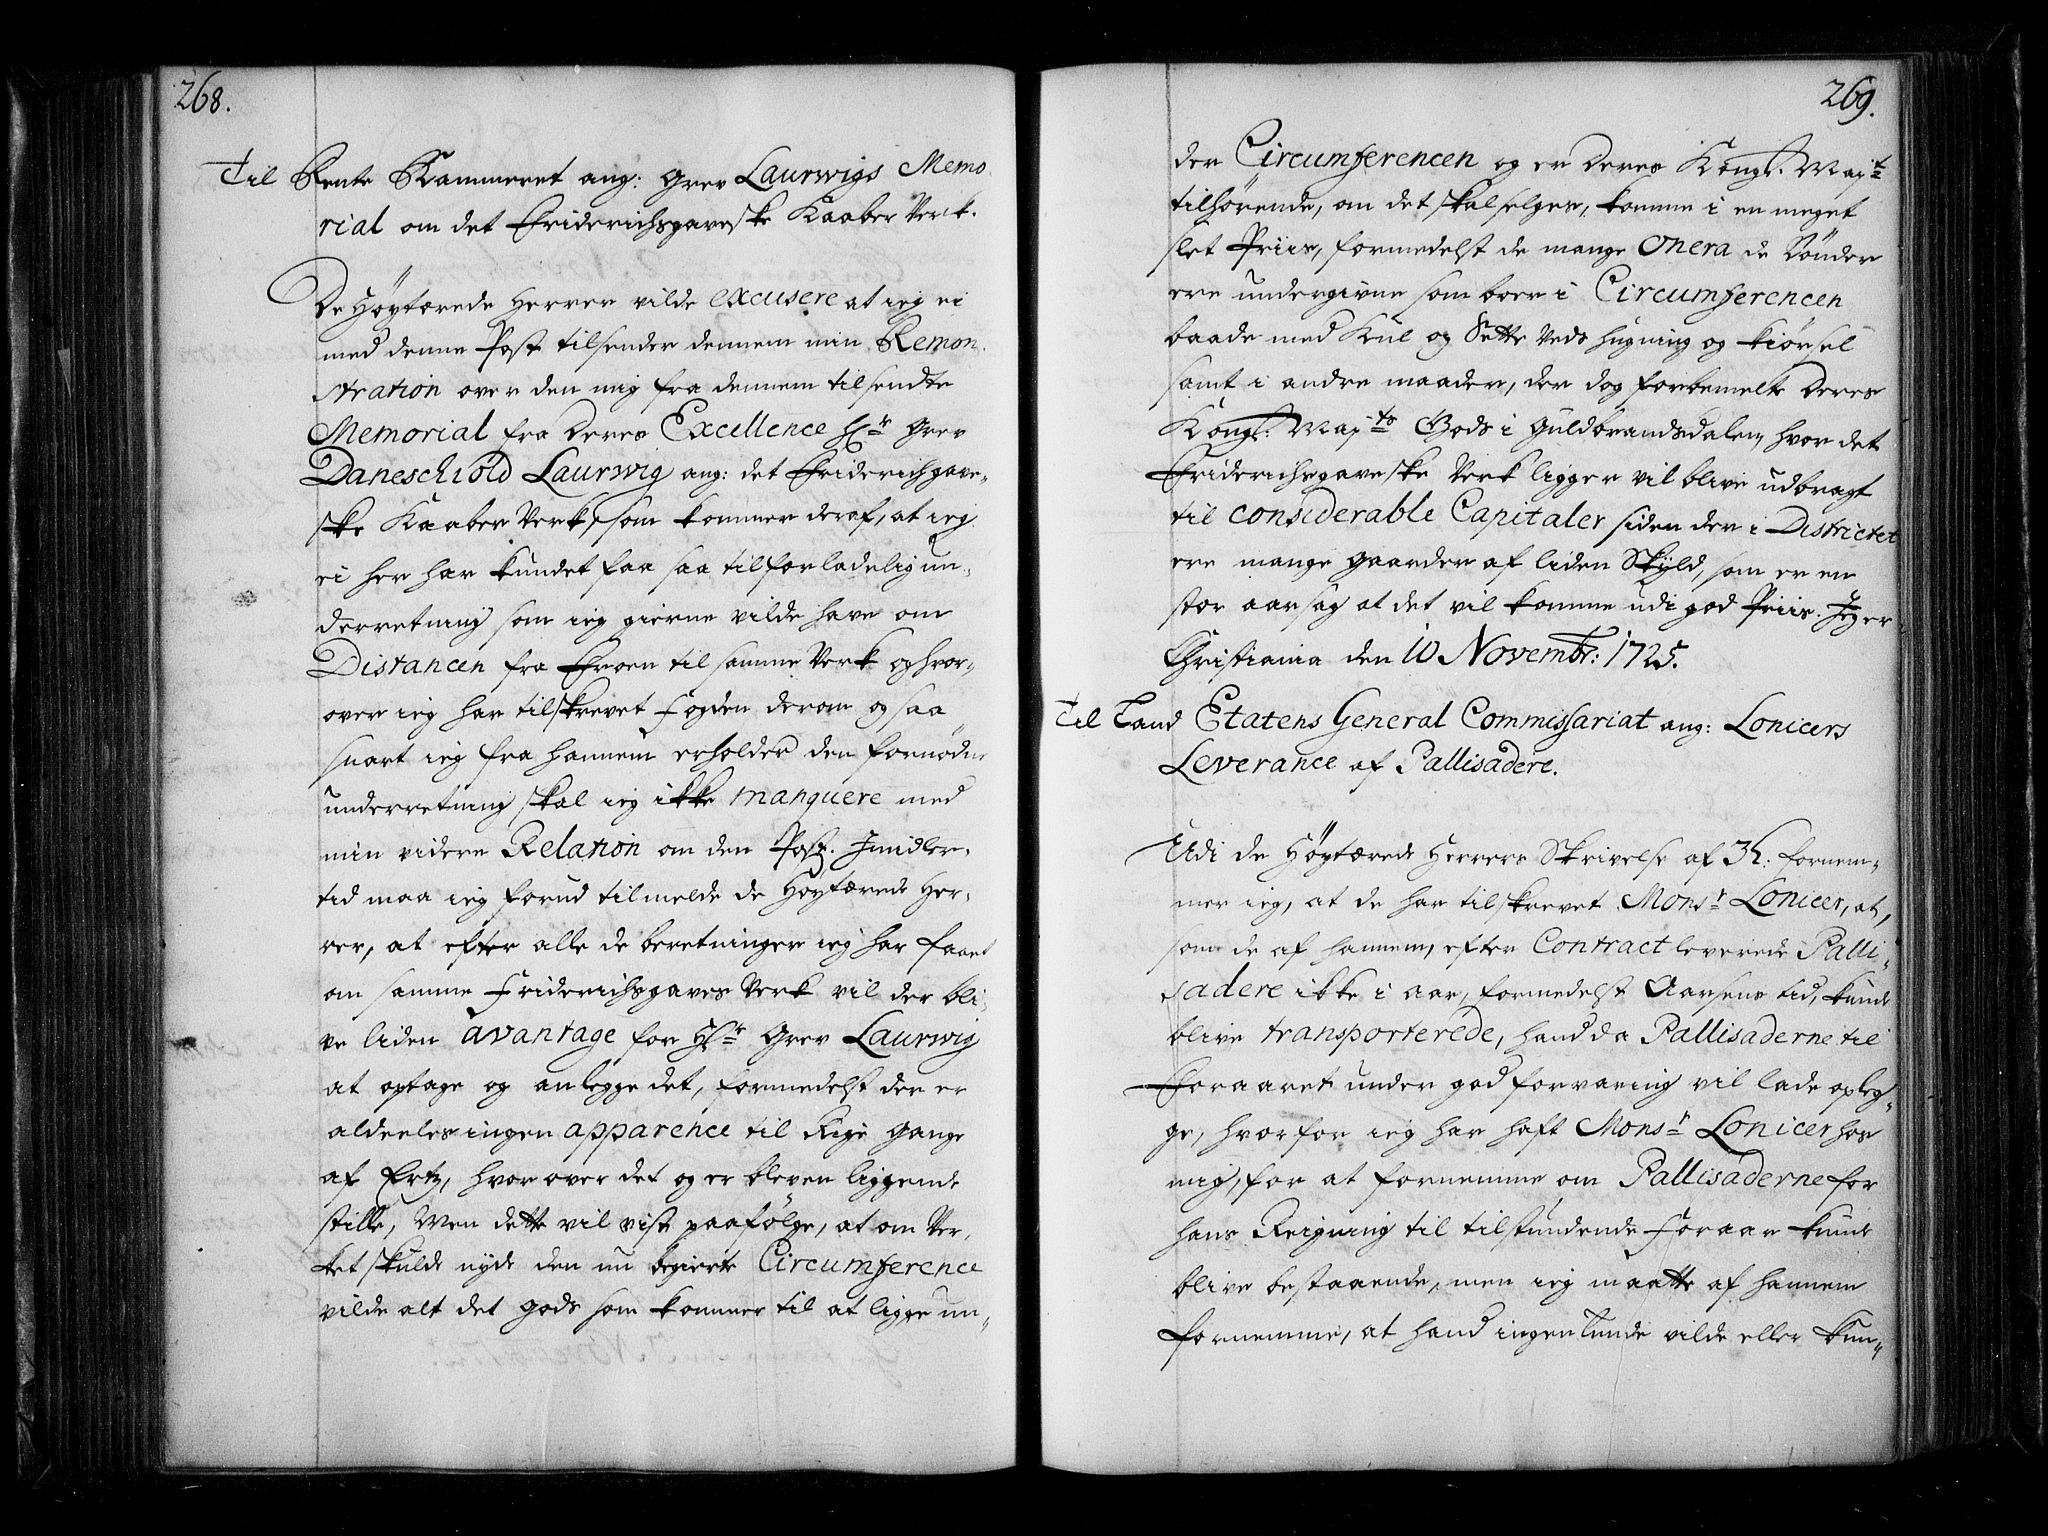 268.
Til Rente Kammeret ang: Grev Laurwigs Memo
rial om det Friderichsgaveske Kaaber Verk.
De Höÿtærede Herrer vilde excusere at ieg ei
med denne Post tilsender dennem min Remon-
stration over den mig fra dennem tilsendte
Memorial fra Deres Excellence Hr Grev
Daneschiold Laurwig ang: det Friderichgave-
ske Kaaber Verk, som kommer deraf, at ieg
ei her har kundet faa saa tilforladelig un-
derretning som ieg gierne vilde have om
Distancen fra Froen til samme Verk og hvor-
over ieg har tilskrevet Fogden derom og saa
snart ieg fra hannem erholder den fornødne
underretning skal ieg ikke manquere med
min videre Relation om den Post. Imidler-
tid maa ieg forud tilmelde de Höÿtærede Her-
rer, at efter alle de beretninger ieg har faaet
om samme Friderichsgaves Verk vil der bli-
ve liden avantage for Hr Grev Laurwig
at optage og anlegge det, formedelst der er
aldeeles ingen apparence til Rige Gange
af Ertz, hvorover det og er bleven liggende
stille, Men dette vil vist paafölge, at om Ver-
ket skulde nyde den nu begierte Circumference
vilde alt det Gods som kommer til at ligge un-
269.
der Circumferencen og er Deres Kongl. Majt
tilhörende, om det skal selges, komme i en meget
slet Priis, formedelst de mange Onera de Bönder
ere undergivne som boer i Circumferencen
baade med Kul og Sette Veds hugning og kiörsel
samt i andre maader, der dog forbemelte Deres
Kongl: Majts Gods i Guldbrandsdalen, hvor det
Friderichsgaveske Verk ligger vil blive udbragt
til considerable Capitaler siden der i Districtet
ere mange gaarder af liden Skÿld, som er en
stor aarsag at det vil komme udi god Priis. Jeg er
Christiania den 10 Novembr: 1725.
Til Land Etatens General Commissariat ang: Lonicers
Leverance af Pallisadere.
Udi de Höÿtærede Herrers Skrivelse af 3h: fornem-
mer ieg, at de har tilskrevet Monsr Lonicer, at,
som de af hannem, efter Contract leverede Palli-
sadere ikke i aar, formedelst Aarsens tid, kunde
blive transporterede, hand da Pallisaderne til
Foraaret under god forvaring vil lade opleg-
ge, hvorfor ieg har haft Monsr Lonicer hos
mig, for at fornemme om Pallisaderne for
hans Reigning til tilstundende Foraar kunde
blive bestaaende, men ieg maatte af hannem
fornemme, at hand ingenlunde vilde eller kun-